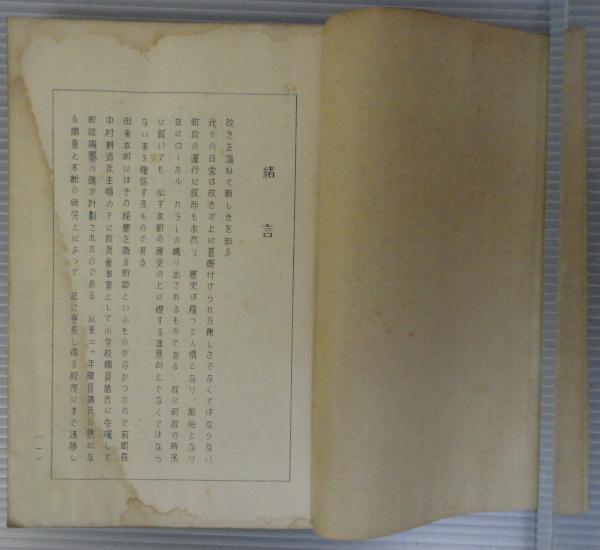 緒言
故きを温ねて新しきを知る
我々の日常は故きが上に基礎付けられた新しさでなくてはならない
町政の運行に於而も亦然り 歴史は積つて人情となり、風俗となり
茲にローカル、カラーの織り出されるものである 故に町政の将来
に於いても、必ず本町の歴史の上に礎する進展向上でなくてはなら
ない事を確信するものである
由来本町にはその経歴を語る町誌といふものがなかつたので前町長
中村耕造氏主唱の下に教育会事業として小学校職員諸氏に委嘱して
町誌編纂の議が計劃されたのである 以来二ヶ年職員諸氏の熱心な
る調査と不断の研究とによつて 茲に発表し得る程度にまで進捗し
(一)